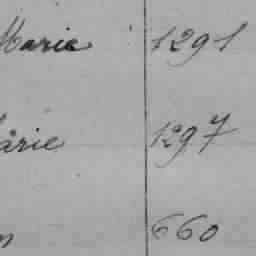 Marie 1291
Marie 1297
660